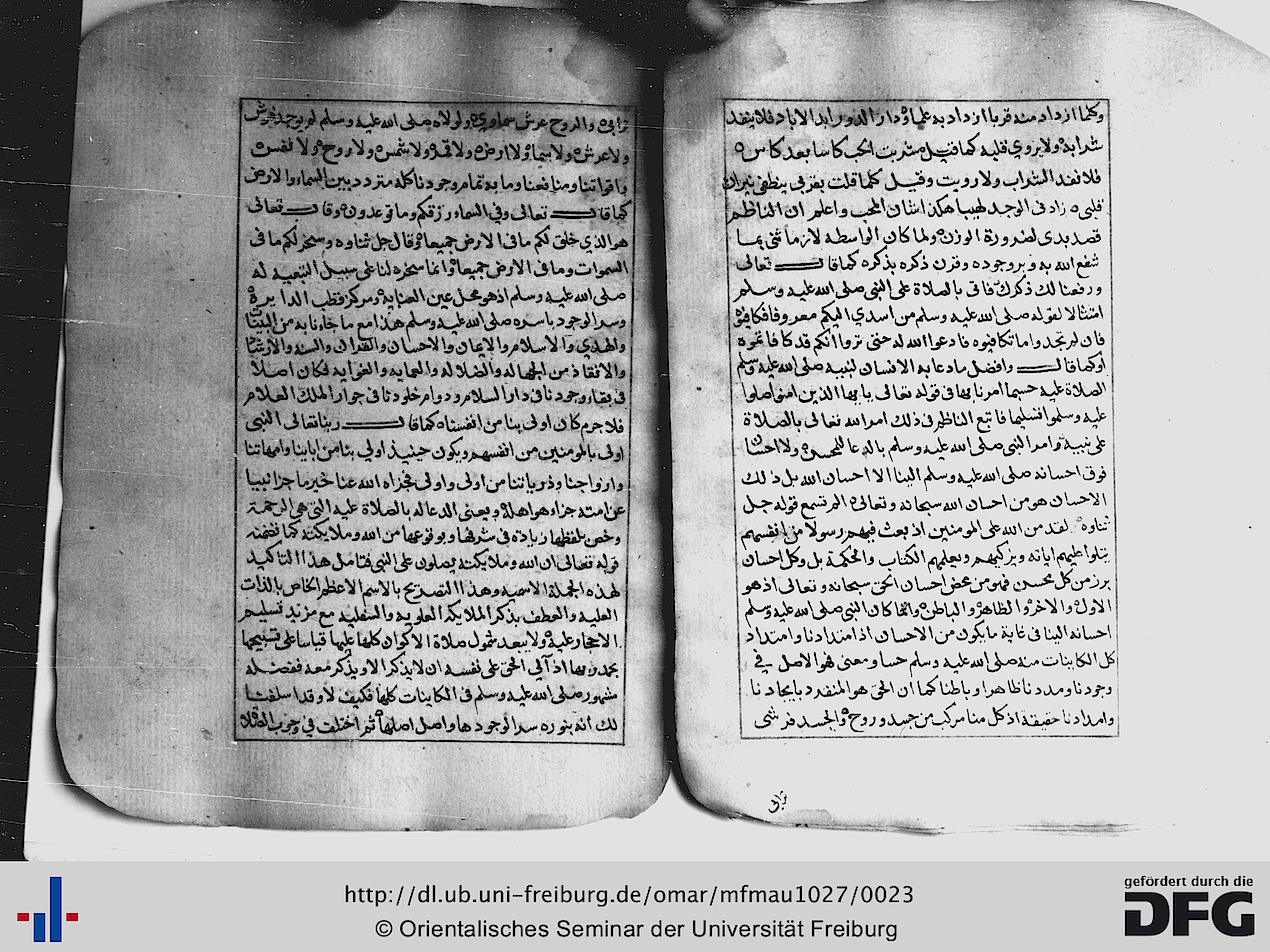 وكلما ازداد منه قربا ازداد به علما ودار الدور ابد الاباد فلا ينفد
شرابه ولا يروي قلبه كما قيل شربت الحب كاسا بعد كاس
فلا نفد الشراب ولا رويت وقيل كلما قلت بقربي ينطفي نيران
قلبي زاد في الوجد لهيبا هكذا شان المحب واعلم ان الناظم
قصد بدى لضرورة الوزن ولما كان الواسطه لازما ثنى بما
شفع الله به وبروجوده وقرن ذكره بذكره كما قال تعالى
ورفعنا لك ذكرك فاتى بالصلاة على النبي صلى الله عليه وسلم
امتثالا لقوله صلى الله عليه وسلم من اسدي اليكم معروفا فكافيوه
فان لم تجدوا ما تكافيوه فادعوا الله له حتى تروا انكم قد كافاتموه
او كما قال وافضل ما دعا به الانسان لنبيه صلى الله عليه وسلم
الصلاة عليه حسبما امرنا بها في قوله تعالى يا يها الذين امنوا صلوا
عليه وسلموا تسليما فاتبع الناظم في ذلك امر الله تعالى بالصلاة
على نبيه وامر النبي صلى الله عليه وسلم بالدعا للمحسن ولا احسان
فوق احسانه صلى الله عليه وسلم الينا الا احسان الله بل ذلك
الاحسان هو من احسان الله سبحانه وتعالى الم تسمع قوله جل
ثناوه لقد من الله على المومنين اذ بعث فيهم رسولا من انفسهم
يتلوا عليهم اياته ويزكيهم ويعلمهم الكتاب والحكمة بل وكل احسان
برز من كل محسن فهو من محض احسان الحق سبحانه وتعالى اذ هو
الاول والاخر والظاهر والباطن وانما كان النبي صلى الله عليه وسلم
احسانه الينا في غاية ما يكون من الاحسان اذ امتدادنا وامتداد
كل الكاينات منه صلى الله عليه وسلم حسا ومعنى فهو الاصل في
وجودنا ومددنا ظاهرا وباطنا كما ان الحق هو المنفرد بايجادنا
وامدادنا حقيقة اذ كل منا مركب من جسد وروح والجسد فرشى
ترابى
ترابى والروح عرش سماوي ولولاه صلى الله عليه وسلم لم يوجد فرش
ولا عرش ولا سما ولا ارض ولا قمر ولا شمس ولا روح ولا نفس
واقواتنا ومنافعنا وما به تمام وجودنا كله متردد بين السماء والارض
كما قال تعالى وفي السماء رزقكم وما توعدون وقال تعالى
هو الذي خلق لكم ما في الارض جميعا وقال جل ثناوه وسخر لكم ما في
السموات وما في الارض جميعا وانما سخره لنا على سبيل التبعيه له
صلى الله عليه وسلم اذ هو محل عين العنايه ومركز قطب الدايرة
وسر الوجود باسره صلى الله عليه وسلم هذا مع ما جاءنا به من البينات
والهدي والاسلام والايمان والاحسان والقران والسنه والارشاد
والانقاذ من الجهاله والضلاله والعمايه والغوايه فكان اصلا
في بقاء وجودنا في دار السلام ودوام خلودنا في جوار الملك العلام
فلا جرم كان اولى بنا من انفسنا كما قال ربنا تعالى النبي
اولى بالمومنين من انفسهم ويكون حينيذ اولي بنا من ابائنا وامهاتنا
وازواجنا وذرياتنا من اولى واولى فجزاه الله عنا خير ما جزا نبيا
عن امته جزاء هو اهله ويعنى الدعا له بالصلاة عليه التي هي الرحمة
وخص بلفظها زيادة في شرفها وبوقوعها من الله وملايكته كما تضمنه
قوله تعالى ان الله وملايكته يصلون على النبي فتامل هذا التاكيد
لهذه الجملة الاسميه وهذا التصريح بالاسم الاعظم الخاص بالذات
العليه والعطف بذكر الملايكه العلويه والسفليه مع مزيد تسليم
الاحجار عليه ولا يبعد شمول صلاة الاكوان كلها عليه قياسا على تسبيحها
بحمد ربها اذ آلي الحق على نفسه ان لا يذكر الا ويذكر معه ففضله
مشهور صلى الله عليه وسلم في الكاينات كلها فكيف لا وقد اسلفنا
لك انه بنوره سر الوجود ها واصل اصلها ثم اختلف في وجوب الصلاة
http://dl.ub.uni-freiburg.de/omar/mfmau1027/0023
© Orientalisches Seminar der Universität Freiburg
gefördert durch die
DFG